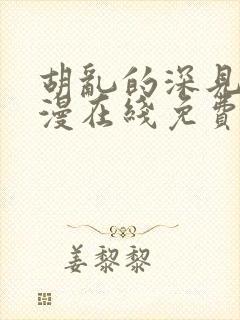 胡乱的深見
漫在綫免費
姜黎黎